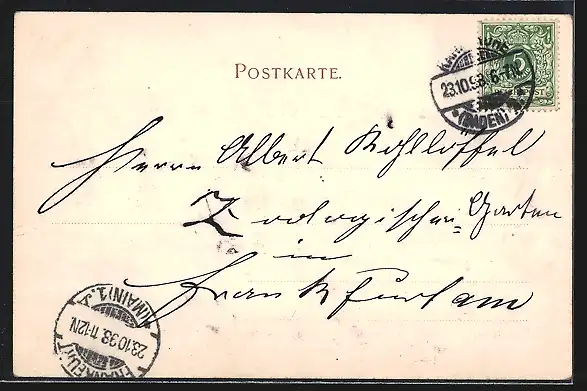 POSTKARTE.
5
REICHSPOST
KARLSRUHE
23.10.98. 6-7N.
* (BADEN) 2. *
Herrn Albert Kohllöffel
Zoologischer-Garten
in
Frankfurt am
FRANKFURT (MAIN) 1.
23.10.98. 11-12N.